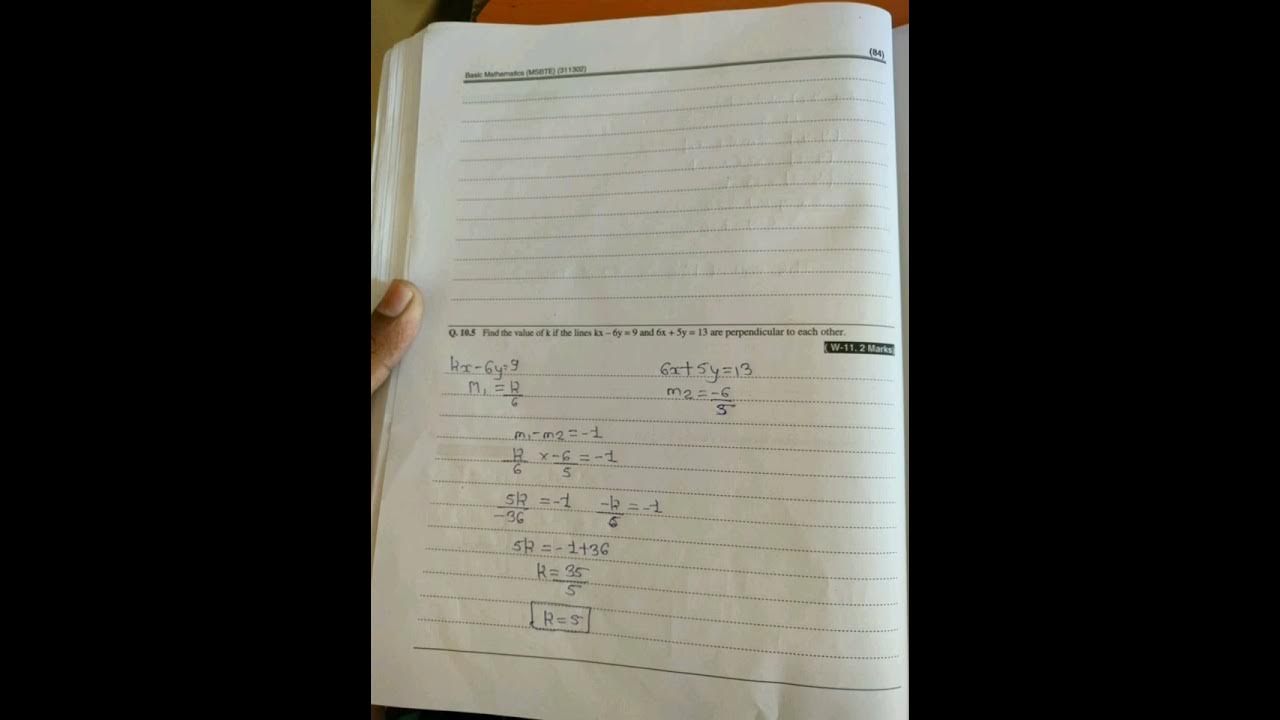 (84)
Basic Mathematics (MSBTE) (311302)
Q. 10.5 Find the value of k if the lines kx – 6y = 9 and 6x + 5y = 13 are perpendicular to each other.
( W-11, 2 Marks
kx-6y=9 6x+5y=13
m₁ = k/6 m2 = -6/5
m₁-m2 = -1
k/6 x -6/5 = -1
5k/-36 = -1 -k/5 = -1
5k = -1+36
k = 35/5
k = 5